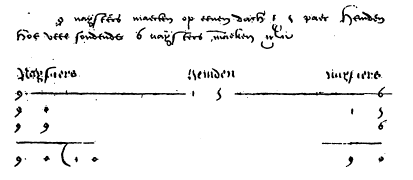 9 naysters maecken op eenen dach 1 5 paer Hemden
hoe vele 6 naysters maecken
Naysters Hemden naysters
9 1 5 6
9 0 1 5
9 9 6
9 0 ( 1 0 9 0